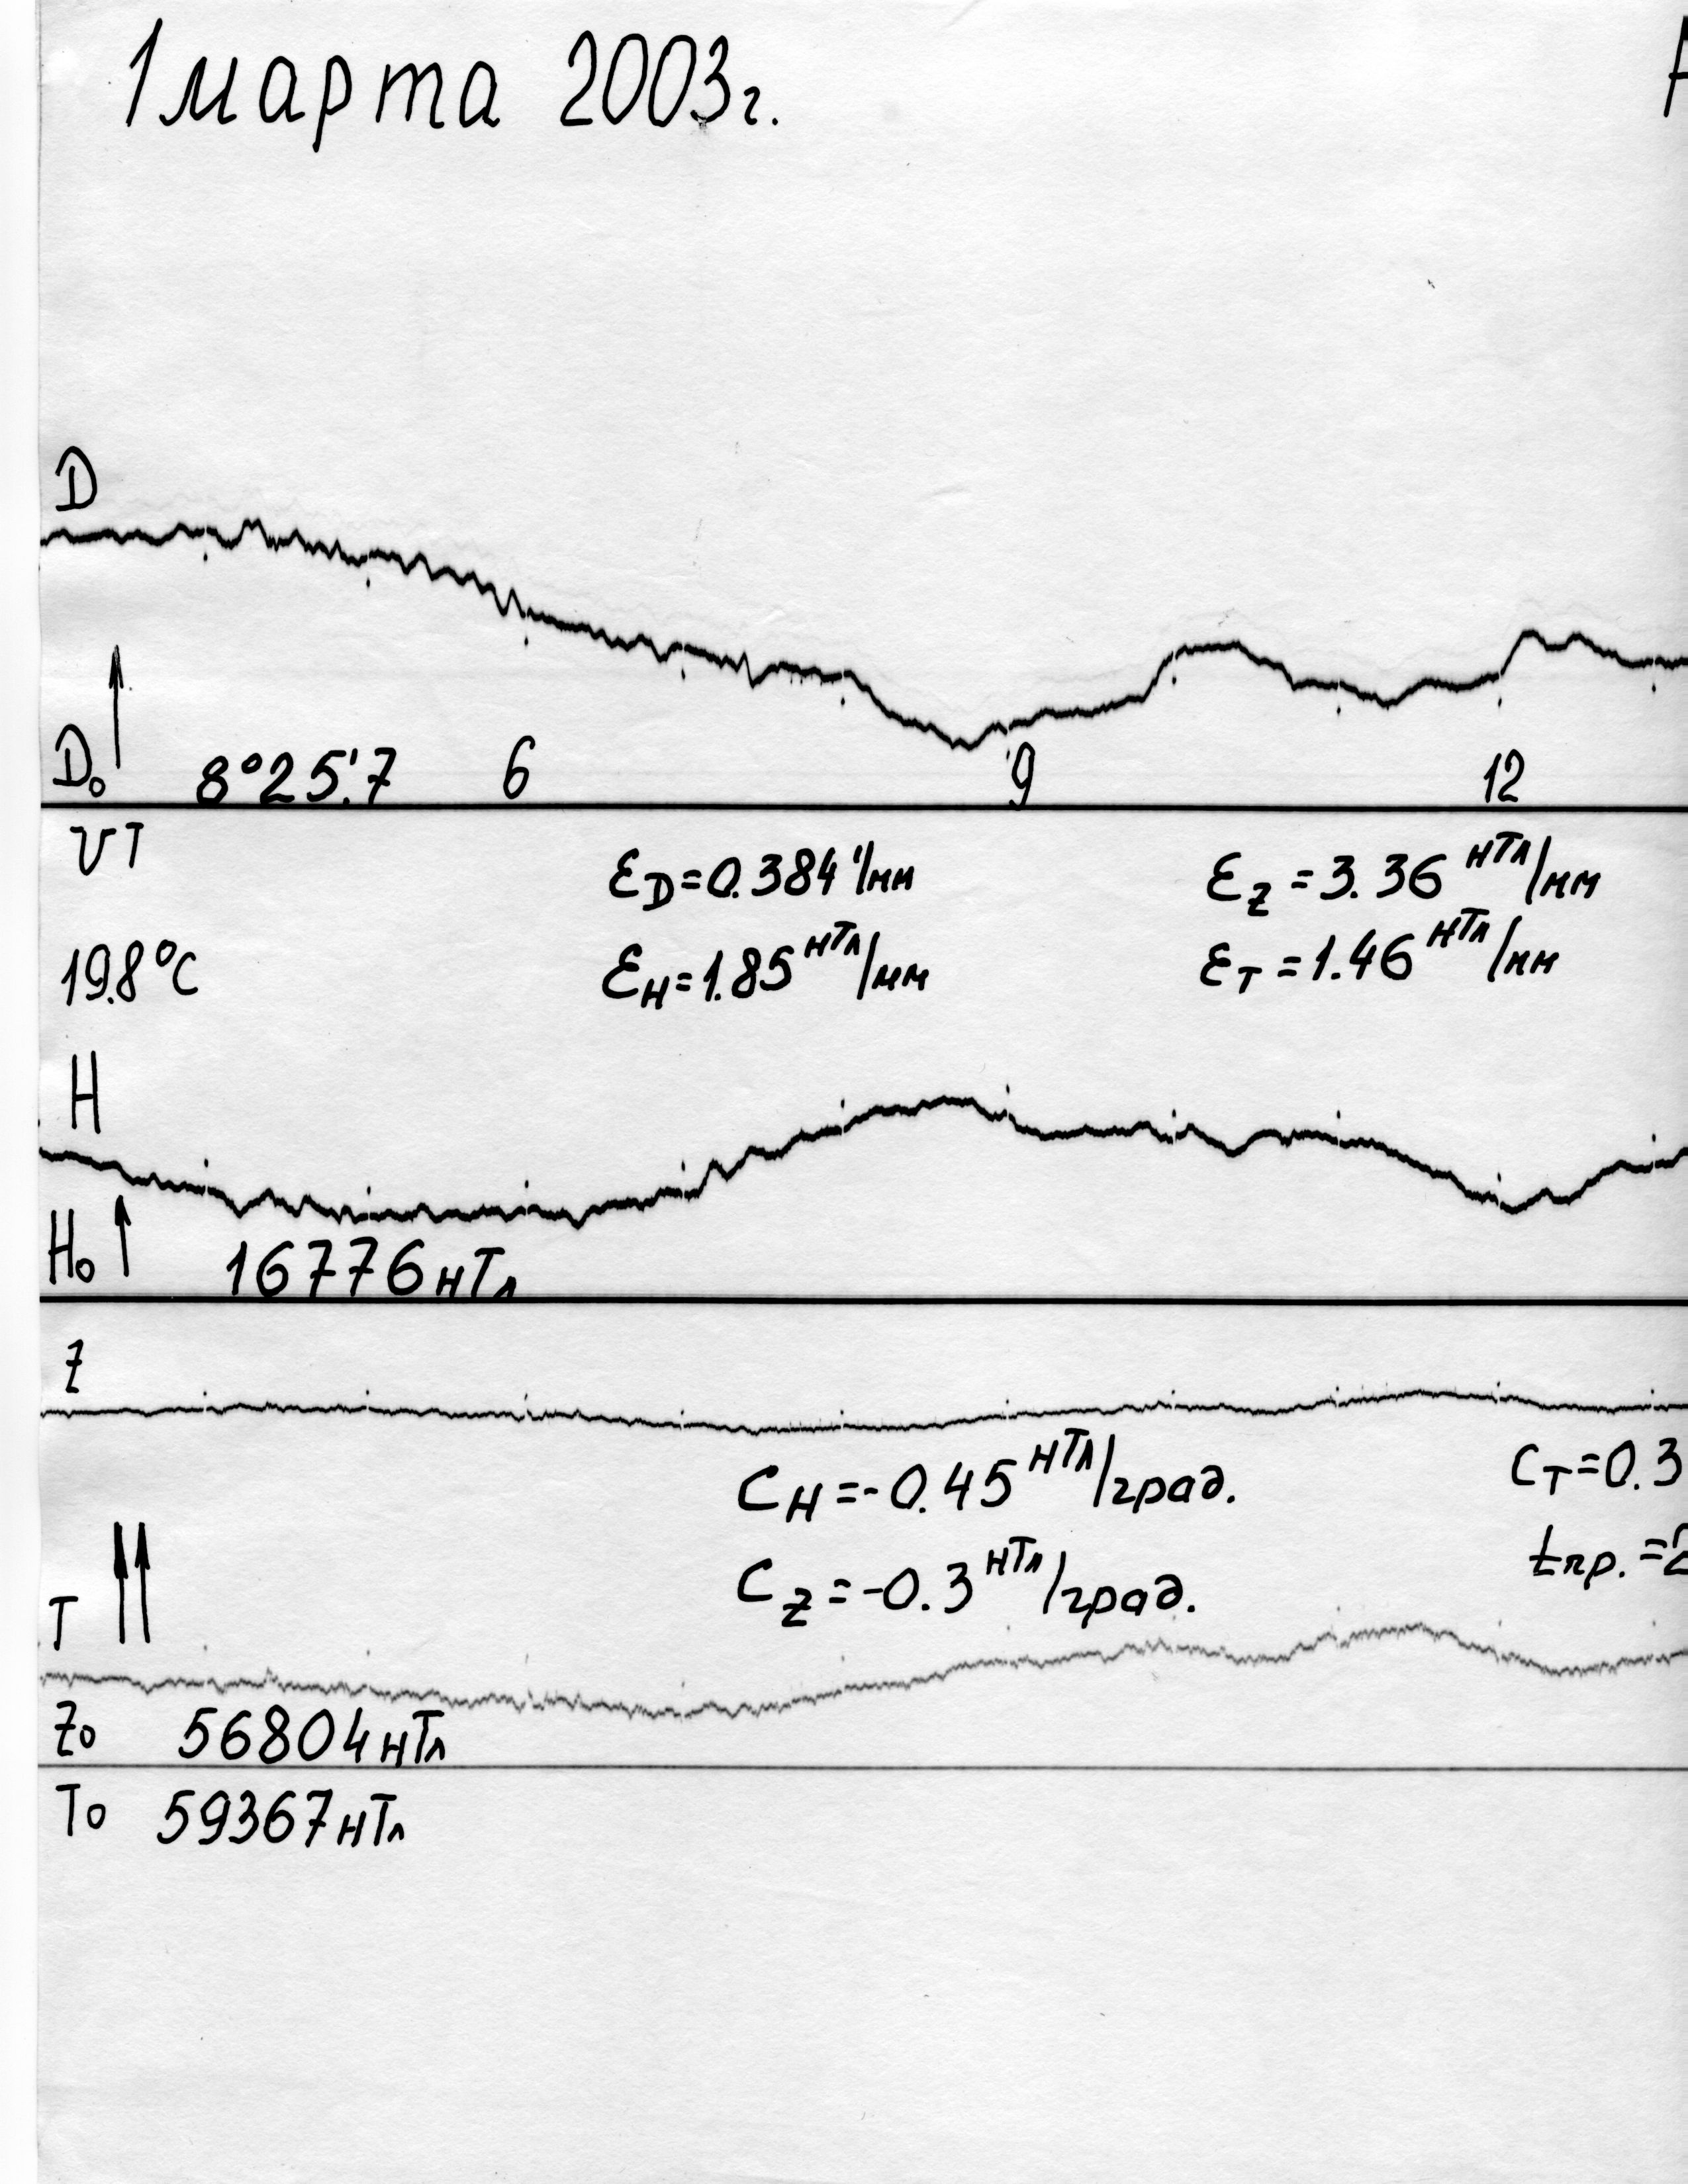 1 марта 2003г.
D
D₀ 8°25.'7 6 9 12
UT
εD=0.384'/мм εZ=3.36 нТл/мм
19.8°C εH=1.85 нТл/мм εT=1.46 нТл/мм
H
H₀ 16776нТл
Z
CH=-0.45 нТл/град. CT=0.3
CZ=-0.3 нТл/град. tпр.=2
T
Z₀ 56804нТл
T₀ 59367нТл